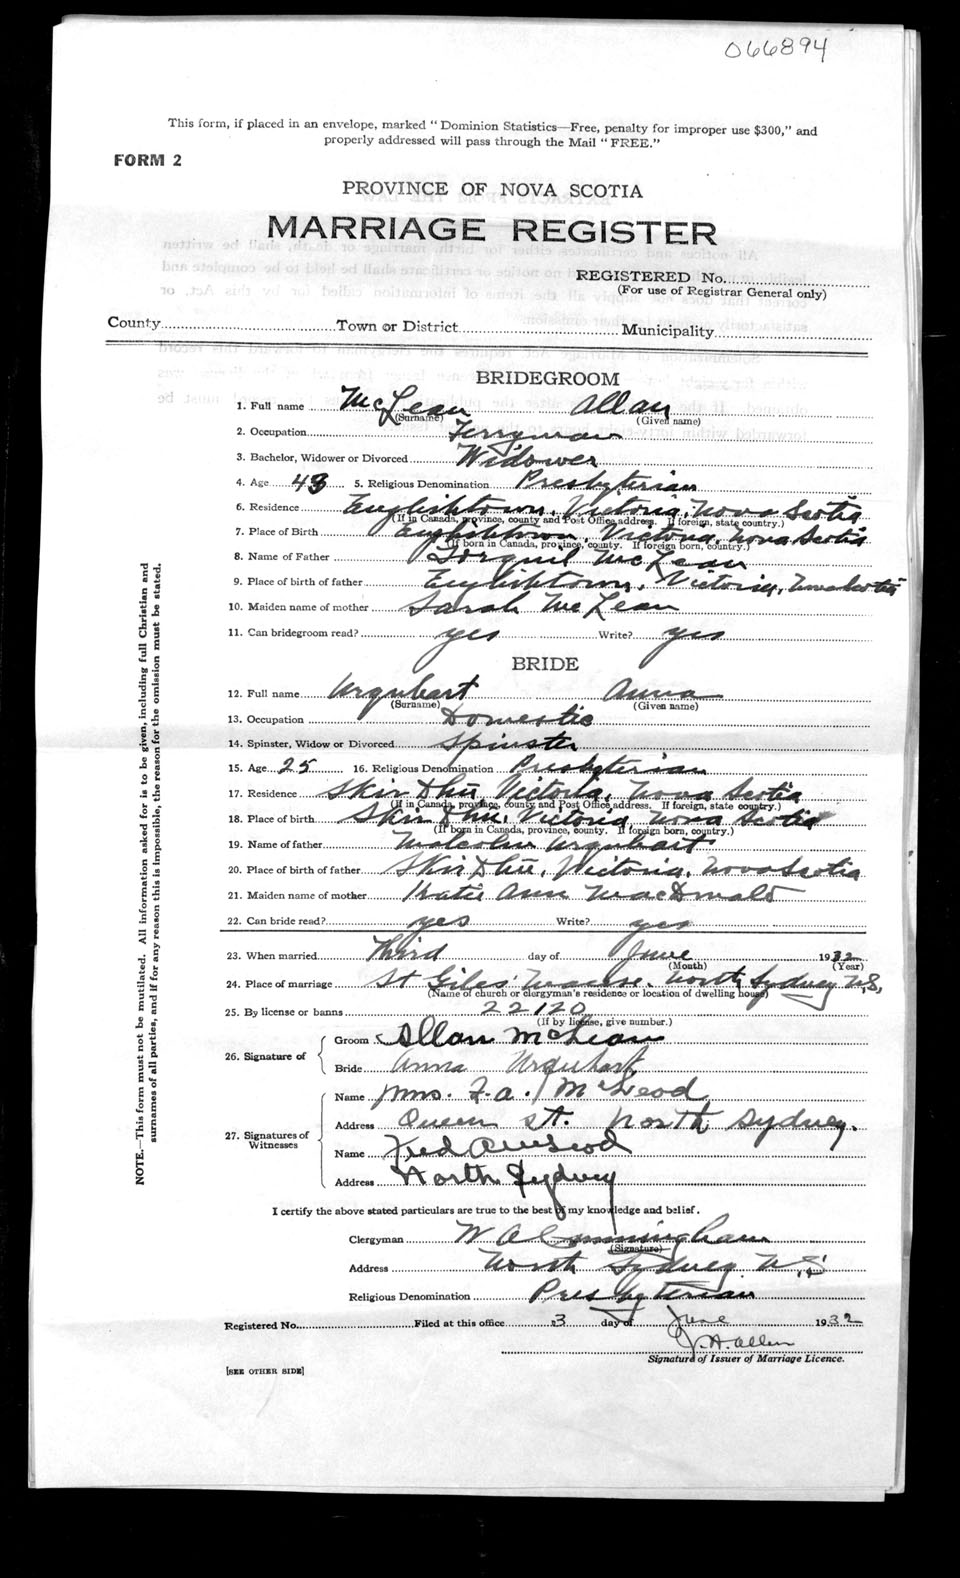 066894
This form, if placed in an envelope, marked " Dominion Statistics—Free, penalty for improper use $300," and
properly addressed will pass through the Mail " FREE."
FORM 2
PROVINCE OF NOVA SCOTIA
MARRIAGE REGISTER
REGISTERED No.
(For use of Registrar General only)
County Town or District Municipality
BRIDEGROOM
1. Full name McLean Allan
(Surname) (Given name)
2. Occupation Ferryman
3. Bachelor, Widower or Divorced Widower
4. Age 43 5. Religious Denomination Presbyterian
6. Residence Englishtown, Victoria, Nova Scotia
(If in Canada, province, county and Post Office address. If foreign, state country.)
7. Place of Birth Englishtown, Victoria, Nova Scotia
(If born in Canada, province, county. If foreign born, country.)
8. Name of Father Torquil McLean
9. Place of birth of father Englishtown, Victoria, Nova Scotia
10. Maiden name of mother Sarah McLean
11. Can bridegroom read? yes Write? yes
BRIDE
12. Full name Urquhart Anna
(Surname) (Given name)
13. Occupation Domestic
14. Spinster, Widow or Divorced Spinster
15. Age 25 16. Religious Denomination Presbyterian
17. Residence Skir Dhu, Victoria, Nova Scotia
(If in Canada, province, county and Post Office address. If foreign, state country.)
18. Place of birth Skir Dhu, Victoria, Nova Scotia
(If born in Canada, province, county. If foreign born, country.)
19. Name of father Malcolm Urquhart
20. Place of birth of father Skir Dhu, Victoria, Nova Scotia
21. Maiden name of mother Katie Ann MacDonald
22. Can bride read? yes Write? yes
23. When married Third day of June 1932
(Month) (Year)
24. Place of marriage St Giles' Manse, North Sydney N.S.
(Name of church or clergyman's residence or location of dwelling house)
25. By license or banns 22120
(If by license, give number.)
26. Signature of Groom Allan McLean
Bride Anna Urquhart
27. Signatures of Witnesses
Name Mrs. F. A. McLeod
Address Queen St. North Sydney.
Name Fred A McLeod
Address North Sydney
I certify the above stated particulars are true to the best of my knowledge and belief.
Clergyman W A Cunningham
(Signature)
Address North Sydney N.S
Religious Denomination Presbyterian
Registered No. Filed at this office 3 day of June 1932
J. H. Allen
Signature of Issuer of Marriage Licence.
[SEE OTHER SIDE]
NOTE.—This form must not be mutilated. All information asked for is to be given, including full Christian and
surnames of all parties, and if for any reason this is impossible, the reason for the omission must be stated.